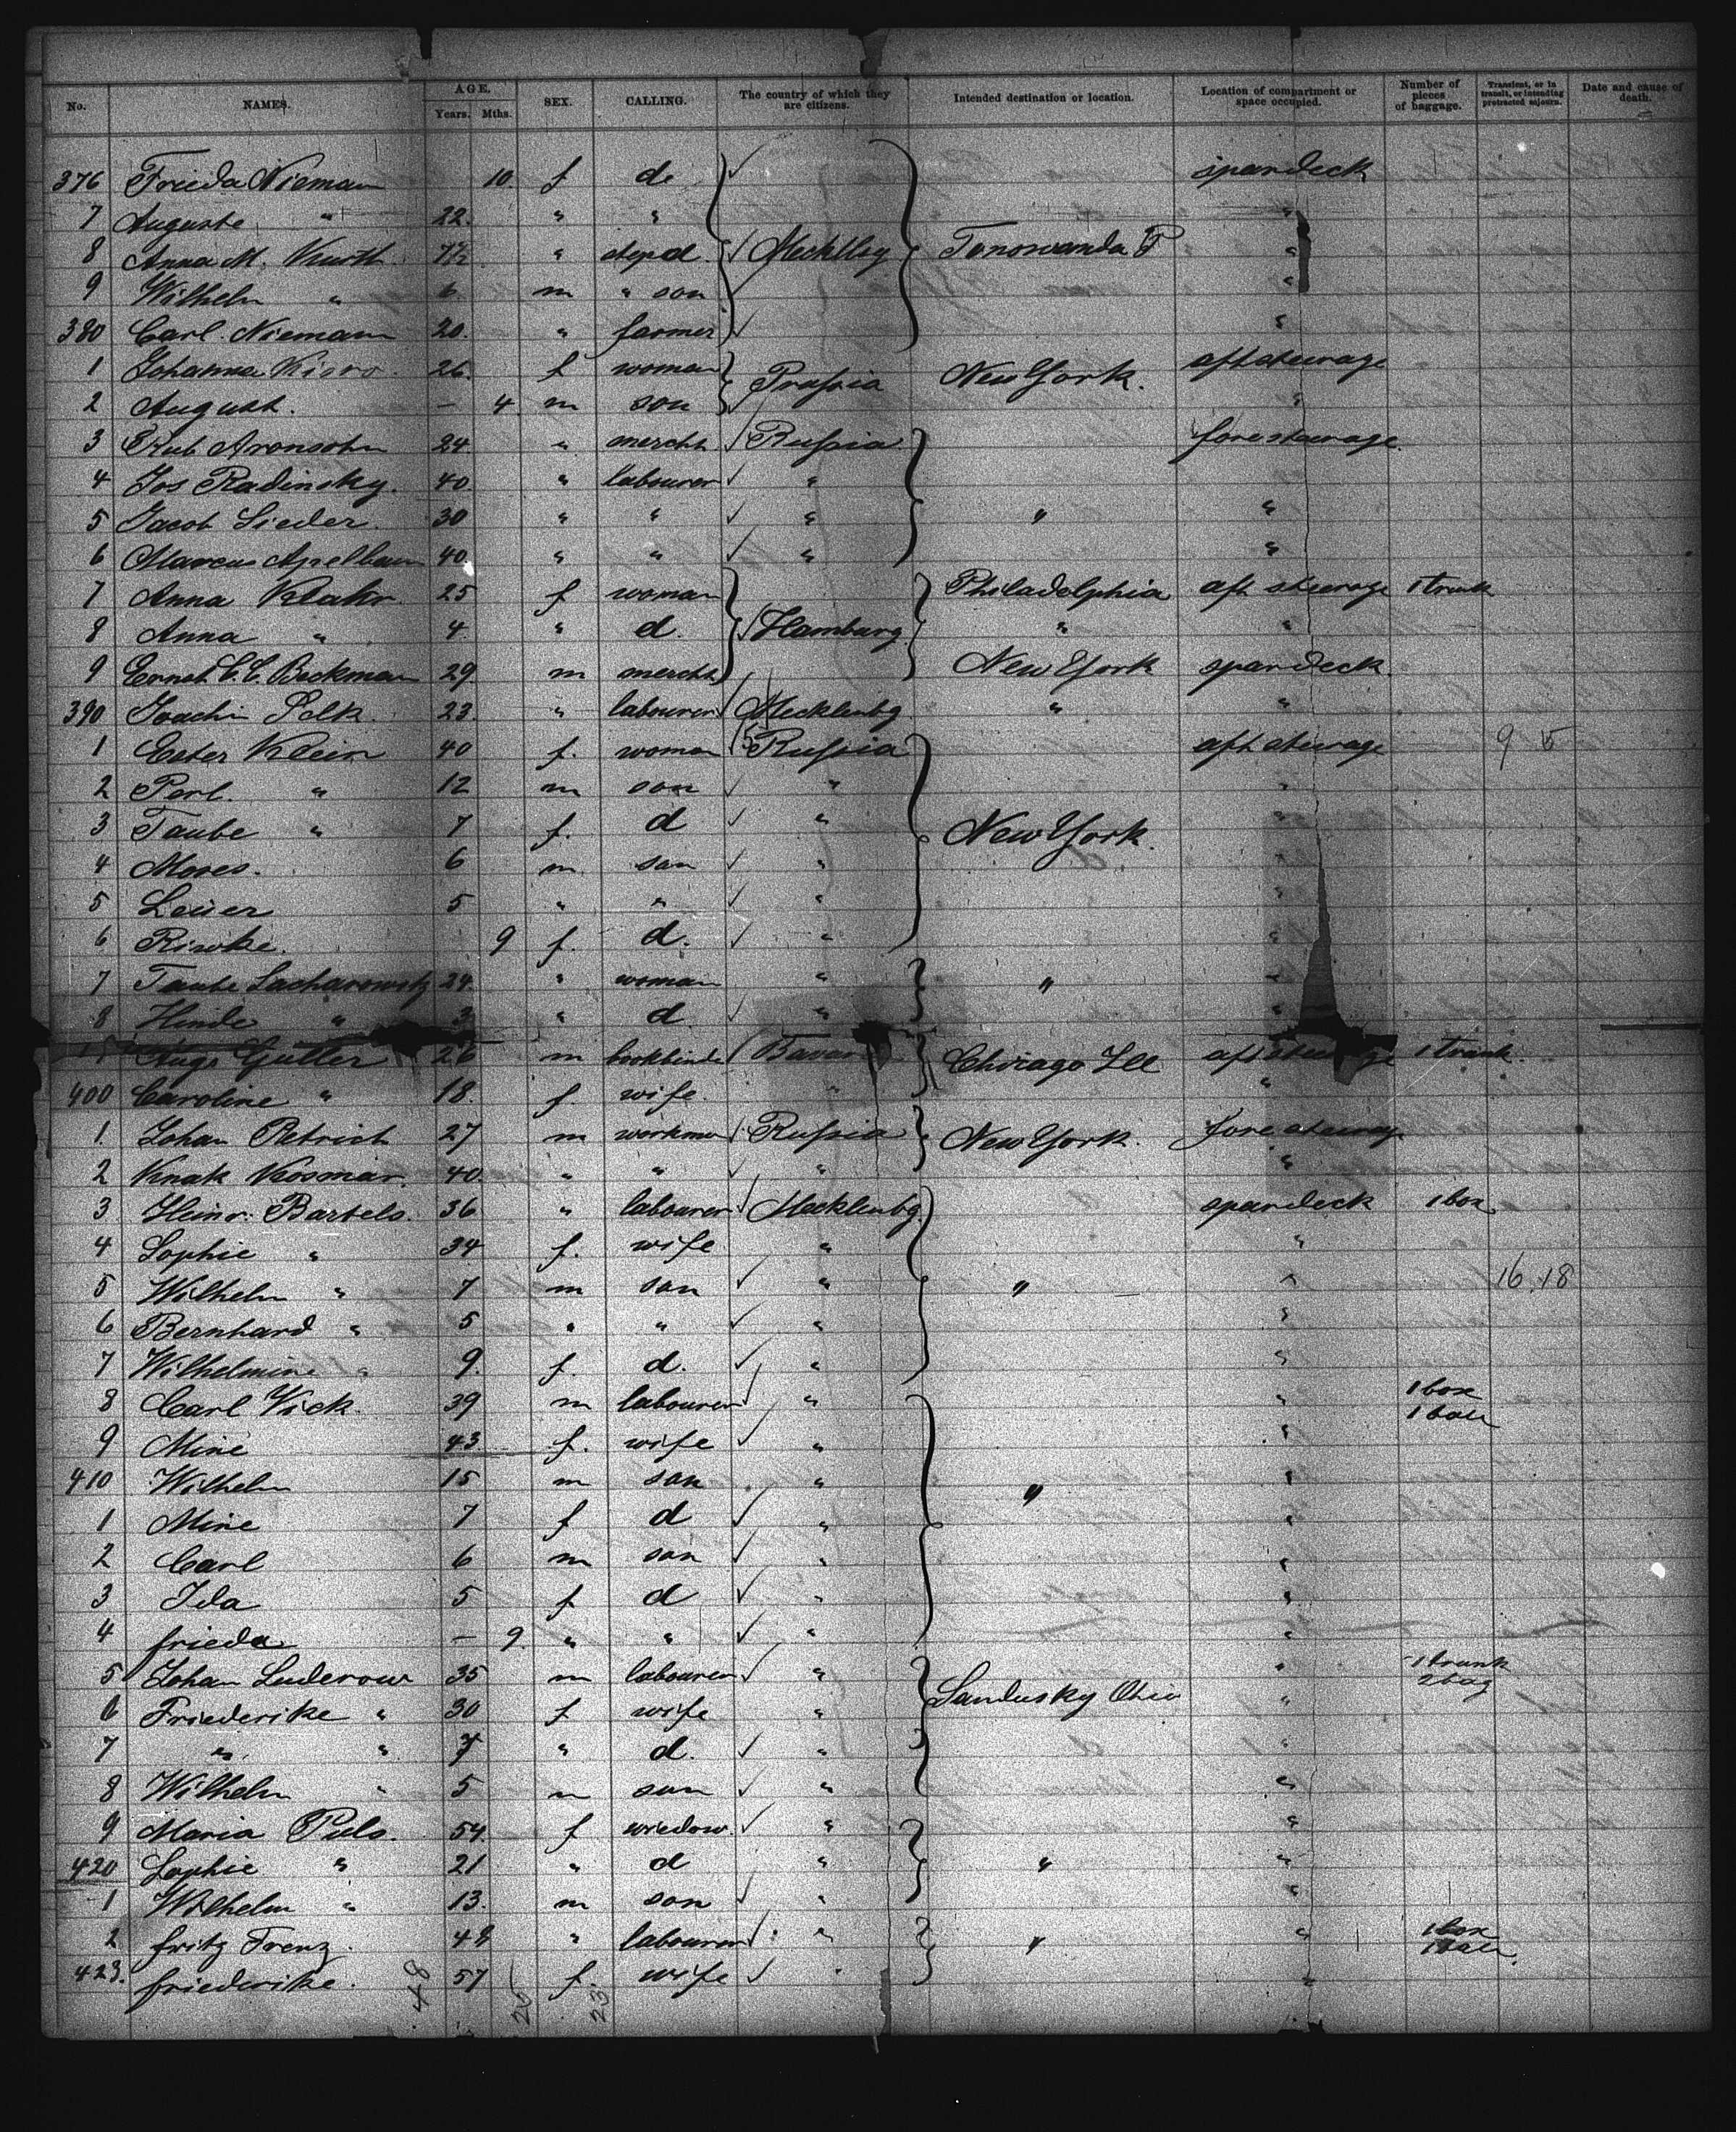 No. NAMES. AGE. Years. Mths. SEX. CALLING. The country of which they are citizens. Intended destination or location. Location of compartment or space occupied. Number of pieces of baggage. Transient, or in transit, or intending protracted sojourn. Date and cause of death.
376 Frieda Nieman 10. f d. spardeck
7 Auguste " 22. " " "
8 Anna M. Kurth 7½ " stepd. Mecklbg Tonowanda "
9 Wilhelm " 6 m " son "
380 Carl. Nieman 20. " farmer "
1 Johanna 26. f woman Prussia New York. aft steerage
2 August. – 4 m son "
3 Aronsohn 24. " mercht Russia fore steerage
4 Jos Radinsky. 40. " labourer "
5 Jacob Lieder. 30 " " " " "
6 Marcus Apelbaum 40. " " " "
7 Anna 25 f woman Philadelphia aft steerage 1 trunk
8 Anna " 4. " d. Hamburg " "
9 Ernst C. C. Beckman 29 m mercht New York spardeck
390 Joachim 23. " labourer Mecklenbg. " "
1 Ester Klein 40 f. woman Russia aft steerage 9 5
2 Perl. " 12 m son " "
3 Taube " 7 f. d " New York. "
4 Moses. 6 m son " "
5 Leiser 5 " " " "
6 Riwke. 9 f. d. " "
7 Taube Sacharowitz 24. " woman " " "
8 Hinde " 3 " d. " "
Augs Guller 26 m bookbinder Chicago Ill aft steerage 1 trunk.
400 Caroline " 18. f wife. " "
1. Johan Petrich 27 m workman Russia New York. fore steerage
2 Knak Kosmar. 40. " " " "
3 Heinr. Bartels. 36 " labourer Mecklenbg. spardeck 1 box
4 Sophie " 34 f. wife " "
5 Wilhelm " 7 m son " " " 16. 18
6 Bernhard " 5 " " " "
7 Wilhelmine " 9. f. d. " "
8 Carl Wick. 39 m labourer " " 1 box 1 bale
9 Mine 43 f. wife " "
410 Wilhelm 15 m son " " "
1 Mine 7 f d " "
2 Carl 6 m son " "
3 Ida 5 f d " "
4 frieda – 9. " " " "
5 Johan Luderow 35 m labourer " " 1 trunk 2 bag
6 Friederike " 30 f wife " Sandusky Ohio "
7 " " 7 " d. " "
8 Wilhelm " 5 m son " "
9 Maria Puls. 54. f wiedow. " "
420 Sophie " 21 " d " " "
1 Wilhelm " 13. m son " "
2 fritz Frenz. 48 " labourer " " " 1 box 1 bale
423. friederike. 57 f. wife " "
48 25 23